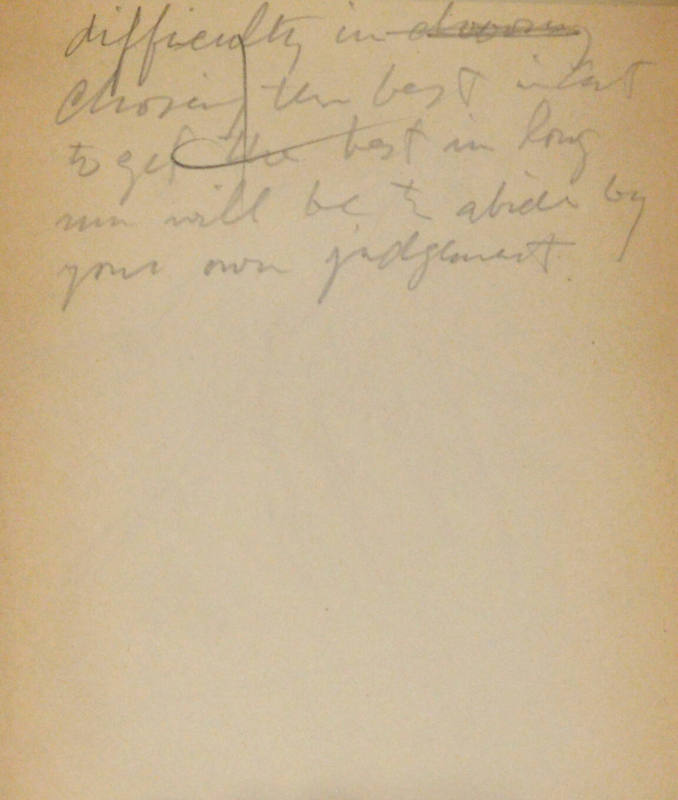 difficulty in choosing
chosing the best in last
to get the best in long
run will be to abide by
your own judgement